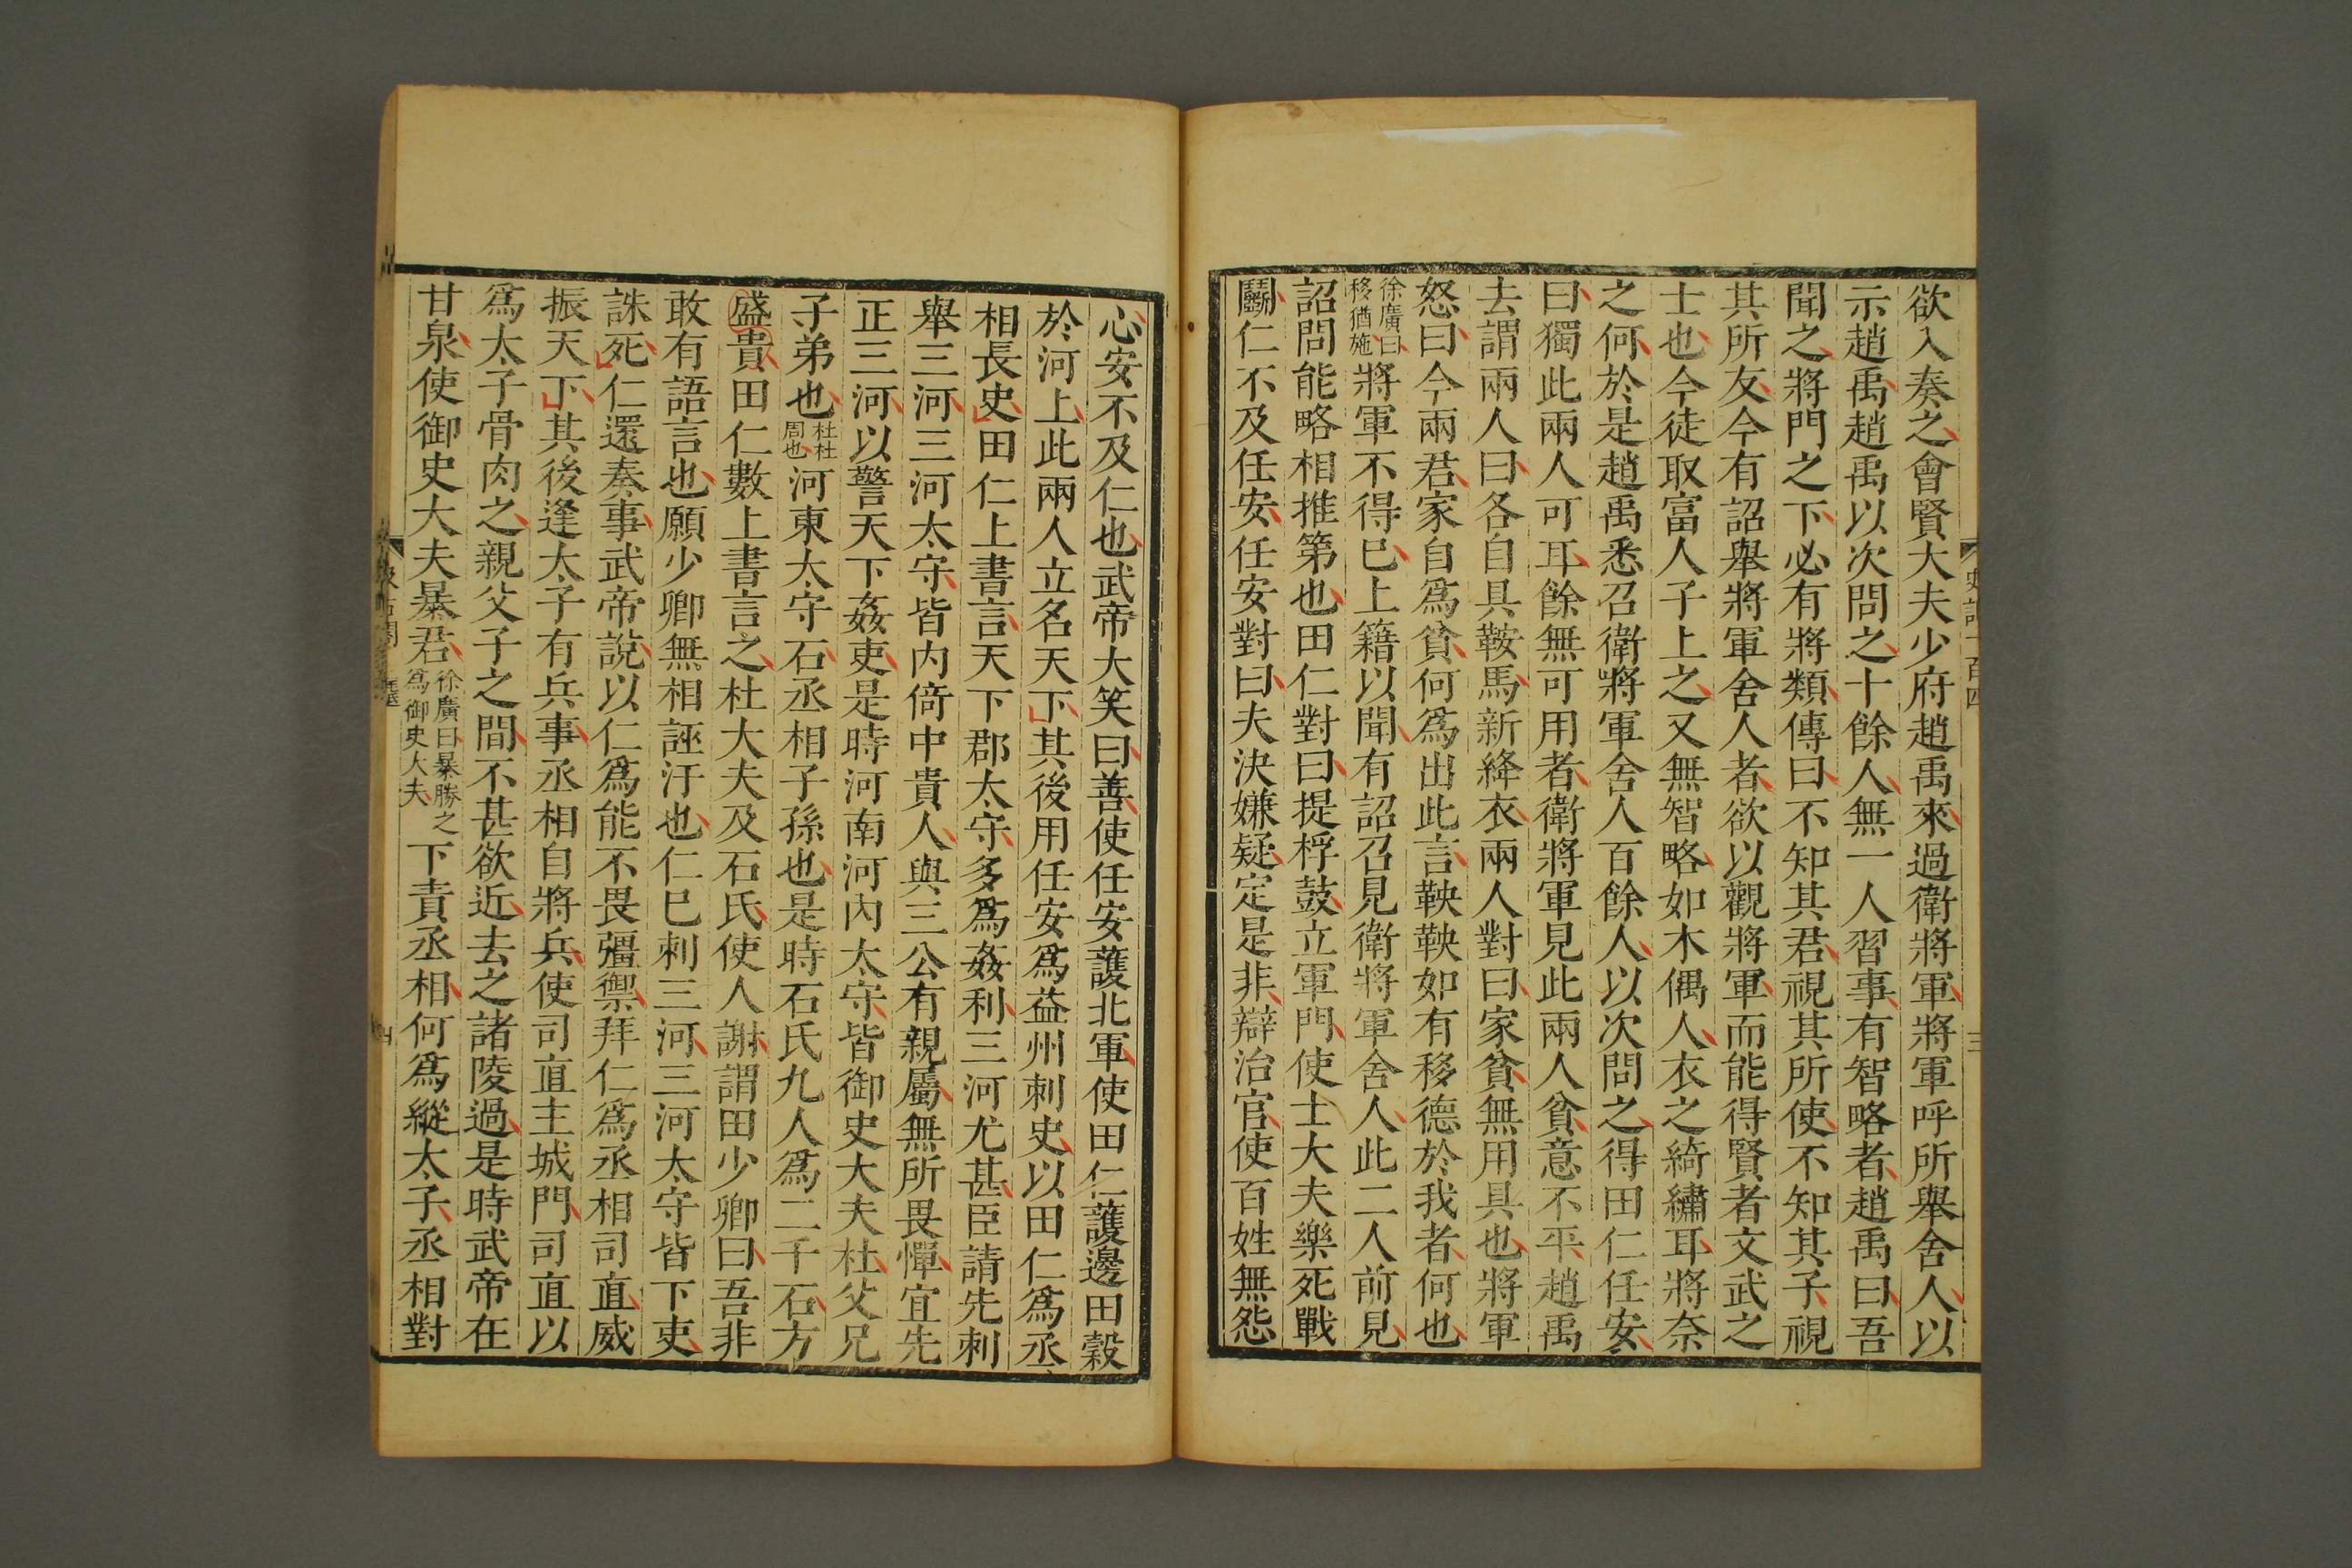 史記一百四
三
欲入奏之會賢大夫少府趙禹來過衛將軍將軍呼所舉舍人以
示趙禹趙禹以次問之十餘人無一人習事有智略者趙禹曰吾
聞之將門之下必有將類傳曰不知其君視其所使不知其子視
其所友今有詔舉將軍舍人者欲以觀將軍而能得賢者文武之
士也今徒取富人子上之又無智略如木偶人衣之綺繡耳將奈
之何於是趙禹悉召衛將軍舍人百餘人以次問之得田仁任安
曰獨此兩人可耳餘無可用者衛將軍見此兩人貧意不平趙禹
去謂兩人曰各自具鞍馬新絳衣兩人對曰家貧無用具也將軍
怒曰今兩君家自爲貧何爲出此言鞅鞅如有移德於我者何也
徐廣曰移猶施將軍不得已上籍以聞有詔召見衛將軍舍人此二人前見
詔問能略相推第也田仁對曰提桴鼓立軍門使士大夫樂死戰
鬭仁不及任安任安對曰夫決嫌疑定是非辯治官使百姓無怨
心安不及仁也武帝大笑曰善使任安護北軍使田仁護邊田穀
於河上此兩人立名天下其後用任安爲益州刺史以田仁爲丞
相長史田仁上書言天下郡太守多爲姦利三河尤甚臣請先刺
舉三河三河太守皆內倚中貴人與三公有親屬無所畏憚宜先
正三河以警天下姦吏是時河南河內太守皆御史大夫杜父兄
子弟也杜杜周也河東太守石丞相子孫也是時石氏九人爲二千石方
盛貴田仁數上書言之杜大夫及石氏使人謝謂田少卿曰吾非
敢有語言也願少卿無相誣汙也仁已刺三河三河太守皆下吏
誅死仁還奏事武帝說以仁爲能不畏彊禦拜仁爲丞相司直威
振天下其後逢太子有兵事丞相自將兵使司直主城門司直以
爲太子骨肉之親父子之間不甚欲近去之諸陵過是時武帝在
甘泉使御史大夫暴君徐廣曰暴勝之爲御史大夫下責丞相何爲縱太子丞相對